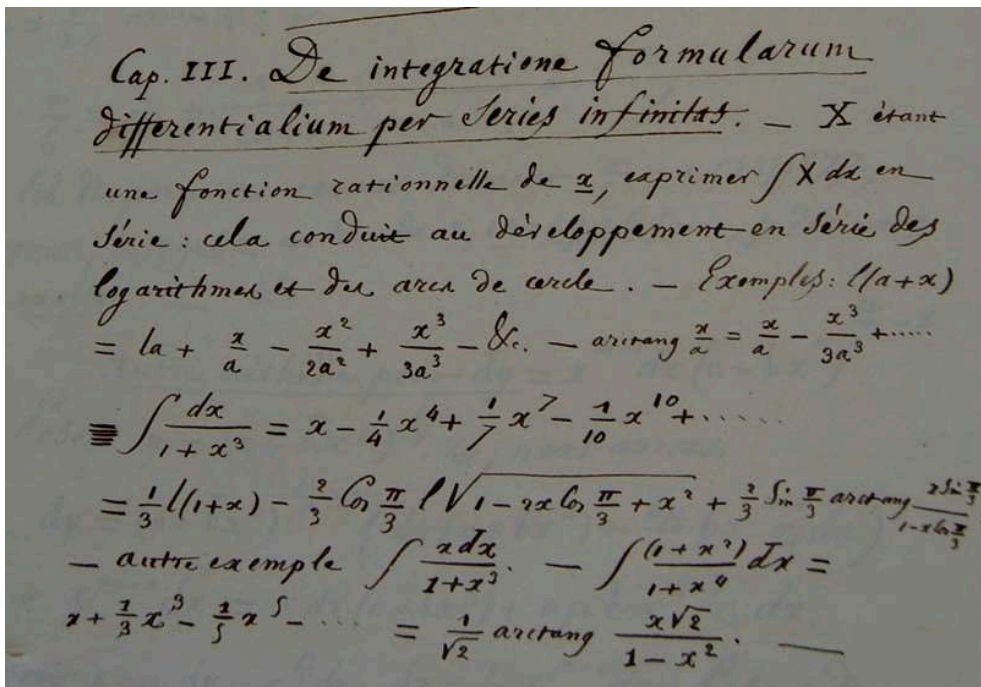 Cap. III. De integratione formularum
differentialium per Series infinitas. — X étant
une fonction rationnelle de x, exprimer ∫ X dx en
Série : cela conduit au développement en Série des
logarithmes et des arcs de cercle. — Exemples: l(a+x)
= la + x/a − x²/2a² + x³/3a³ − &c. — arctang x/a = x/a − x³/3a³ + .....
∫ dx/(1+x³) = x − 1/4 x⁴ + 1/7 x⁷ − 1/10 x¹⁰ + ......
= 1/3 l(1+x) − 2/3 Cos π/3 l√(1 − 2x Cos π/3 + x²) + 2/3 Sin π/3 arctang x Sin π/3 / (1 − x Cos π/3)
— autre exemple ∫ xdx/(1+x³). — ∫ (1+x²)/(1+x⁴) dx =
x + 1/3 x³ − 1/5 x⁵ − .... = 1/√2 arctang x√2/(1−x²). —